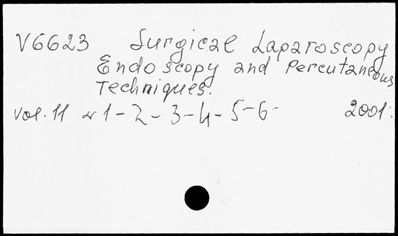 V6623 Surgical Laparoscopy
Endoscopy and Percutaneous
Techniques.
vol. 11 N 1-2-3-4-5-6- 2001.